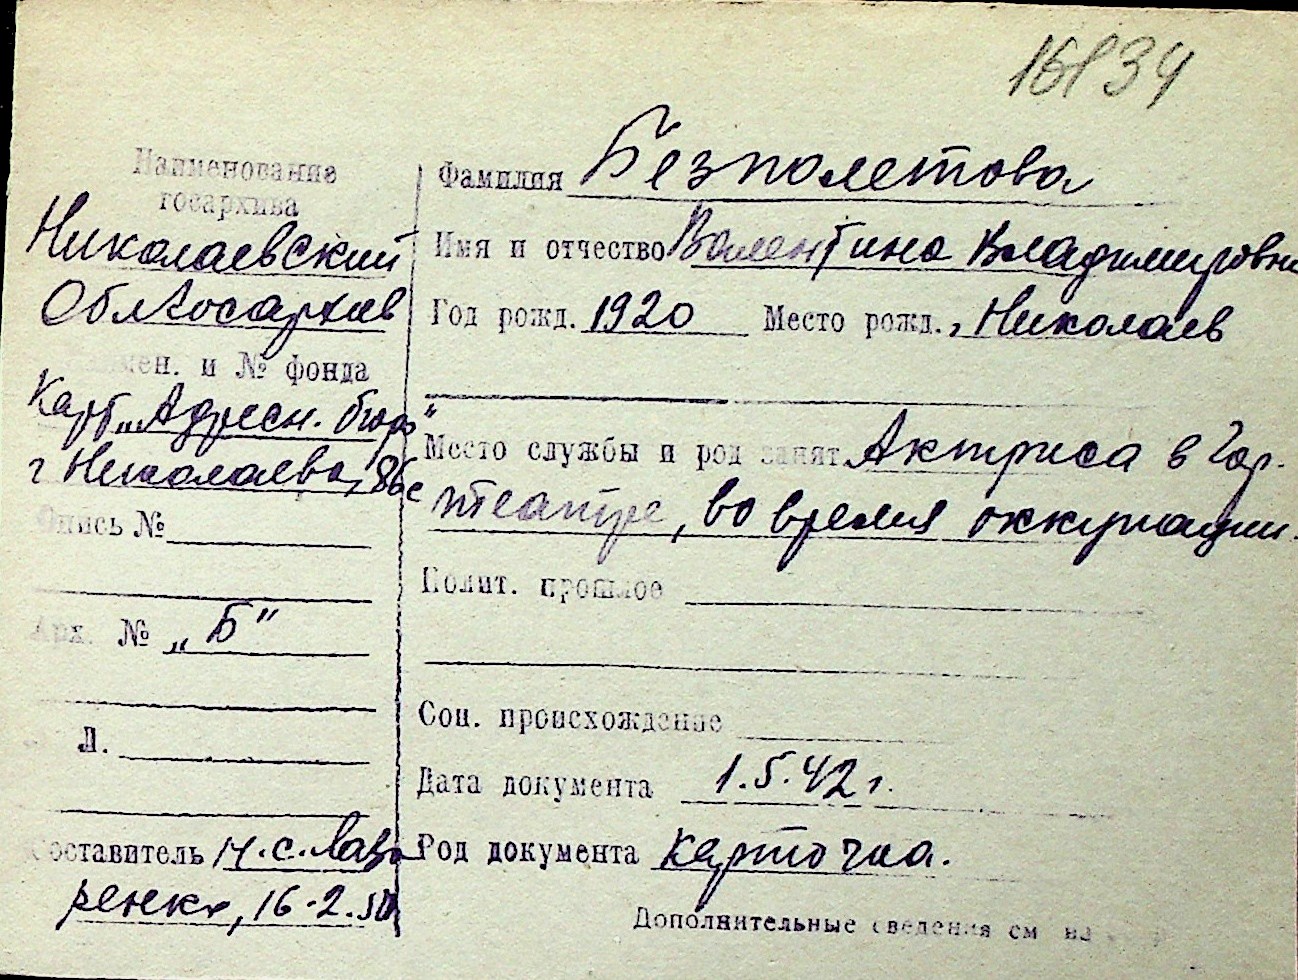 16834
Наименование
госархива
Николаевский
Облгосархив
мен. и № фонда
Карт. „Адресн. бюро"
г Николаева, 86с
Опись №
Арх. № „Б"
Л.
Составитель Н.С. Лаза
ренко, 16.2.50
Фамилия Безполетова
Имя и отчество Валентина Владимировна
Год рожд. 1920 Место рожд. г Николаев
Место службы и род занят. Актриса в Гор.
театре, во время оккупации.
Полит. прошлое
Соц. происхождение
Дата документа 1.5.42 г.
Род документа карточка.
Дополнительные сведения см на